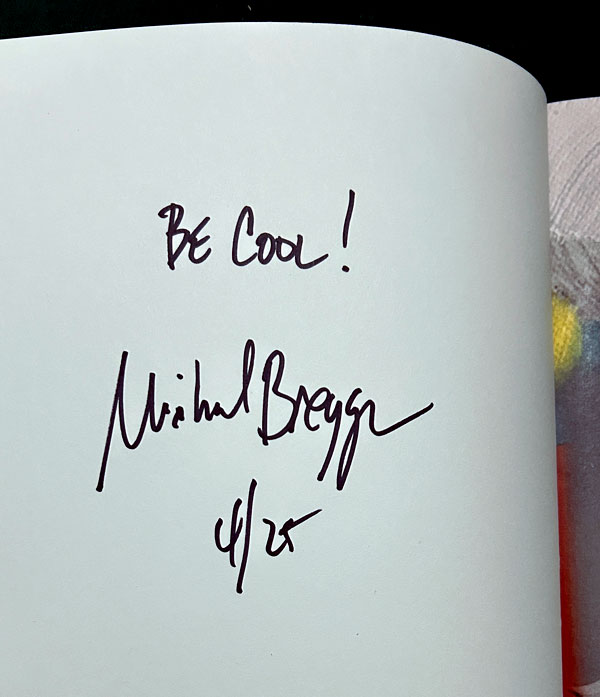 BE COOL!
Michael Breyer
4/25